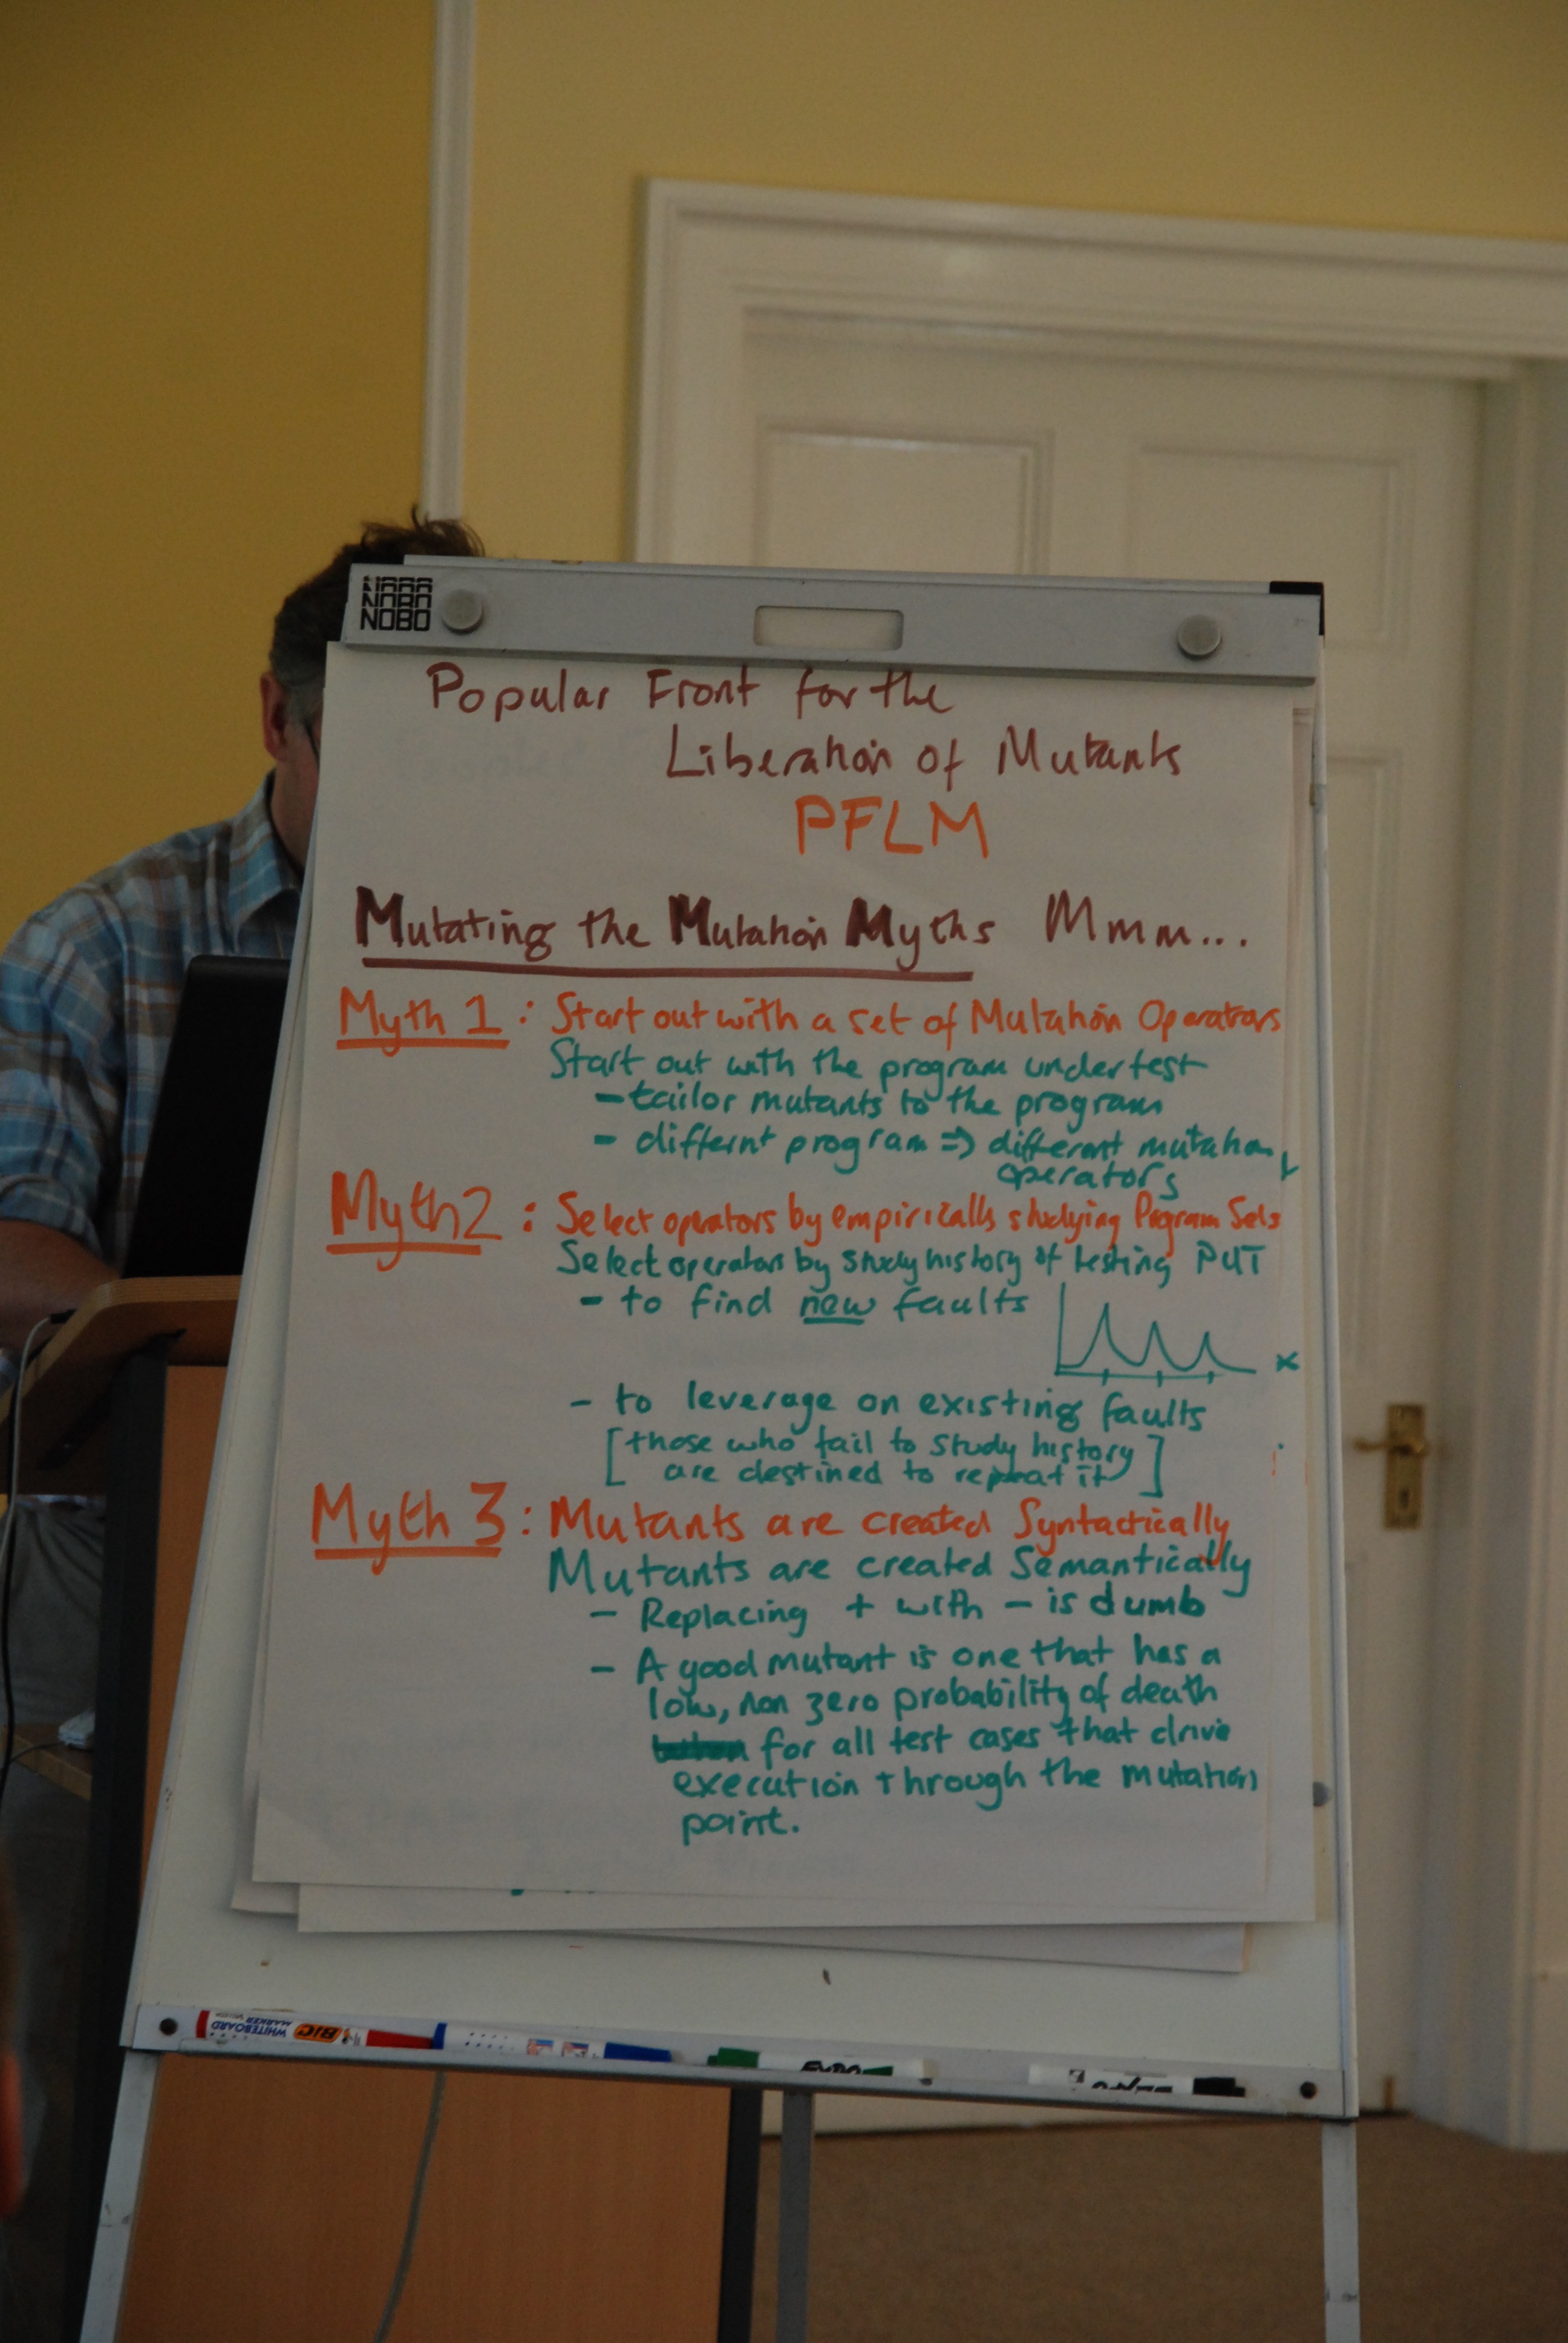 NOBO
NOBO
NOBO
Popular Front for the
Liberation of Mutants
PFLM
Mutating the Mutation Myths Mmm...
Myth 1 : Start out with a set of Mutation Operators
Start out with the program under test
- tailor mutants to the program
- differnt program => different mutation
operators
Myth 2 : Select operators by empirically studying Program Sets
Select operators by study history of testing PUT
- to find new faults
x
- to leverage on existing faults
[those who fail to study history
are destined to repeat it]
Myth 3 : Mutants are created Syntactically
Mutants are created Semantically
- Replacing + with - is dumb
- A good mutant is one that has a
low, non zero probability of death
for all test cases that drive
execution through the mutation
point.
BIC WHITEBOARD
MARKER
EXPO